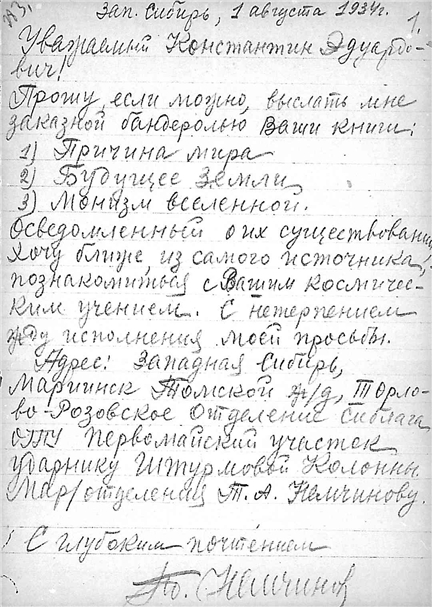 Зап. Сибирь, 1 августа 1934г.
Уважаемый Константин Эдуардо-
вич!
Прошу, если можно, выслать мне
заказной бандеролью Ваши книги:
1) Причина мира
2) Будущее Земли
3) Монизм вселенной.
Осведомленный о их существовании,
хочу ближе, из самого источника,
познакомиться с Вашим космичес-
ким учением. С нетерпением
жду исполнения моей просьбы.
Адрес: Западная Сибирь,
Мариинск Томской ж/д, Орло-
во-Розовское отделение Сиблага
Первомайский участок
ударнику Штурмовой Колонны
Мар/отделения Т. А. Немчинову.
С глубоким почтением
Немчинов